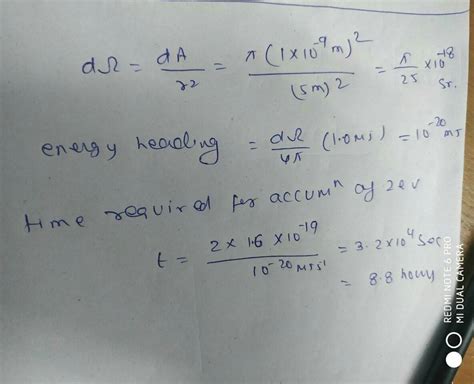 dΩ = dA/r² = π(1×10⁻⁹m)²/(5m)² = π/25 ×10⁻¹⁸ Sr.
energy heading = dΩ/4π (1.0mJ) = 10⁻²⁰ mJ
time required for accumⁿ of 2ev
t = 2×1.6×10⁻¹⁹/10⁻²⁰mJs⁻¹ = 3.2×10⁴ Sec
= 8.8 hours
REDMI NOTE 6 PRO
MI DUAL CAMERA